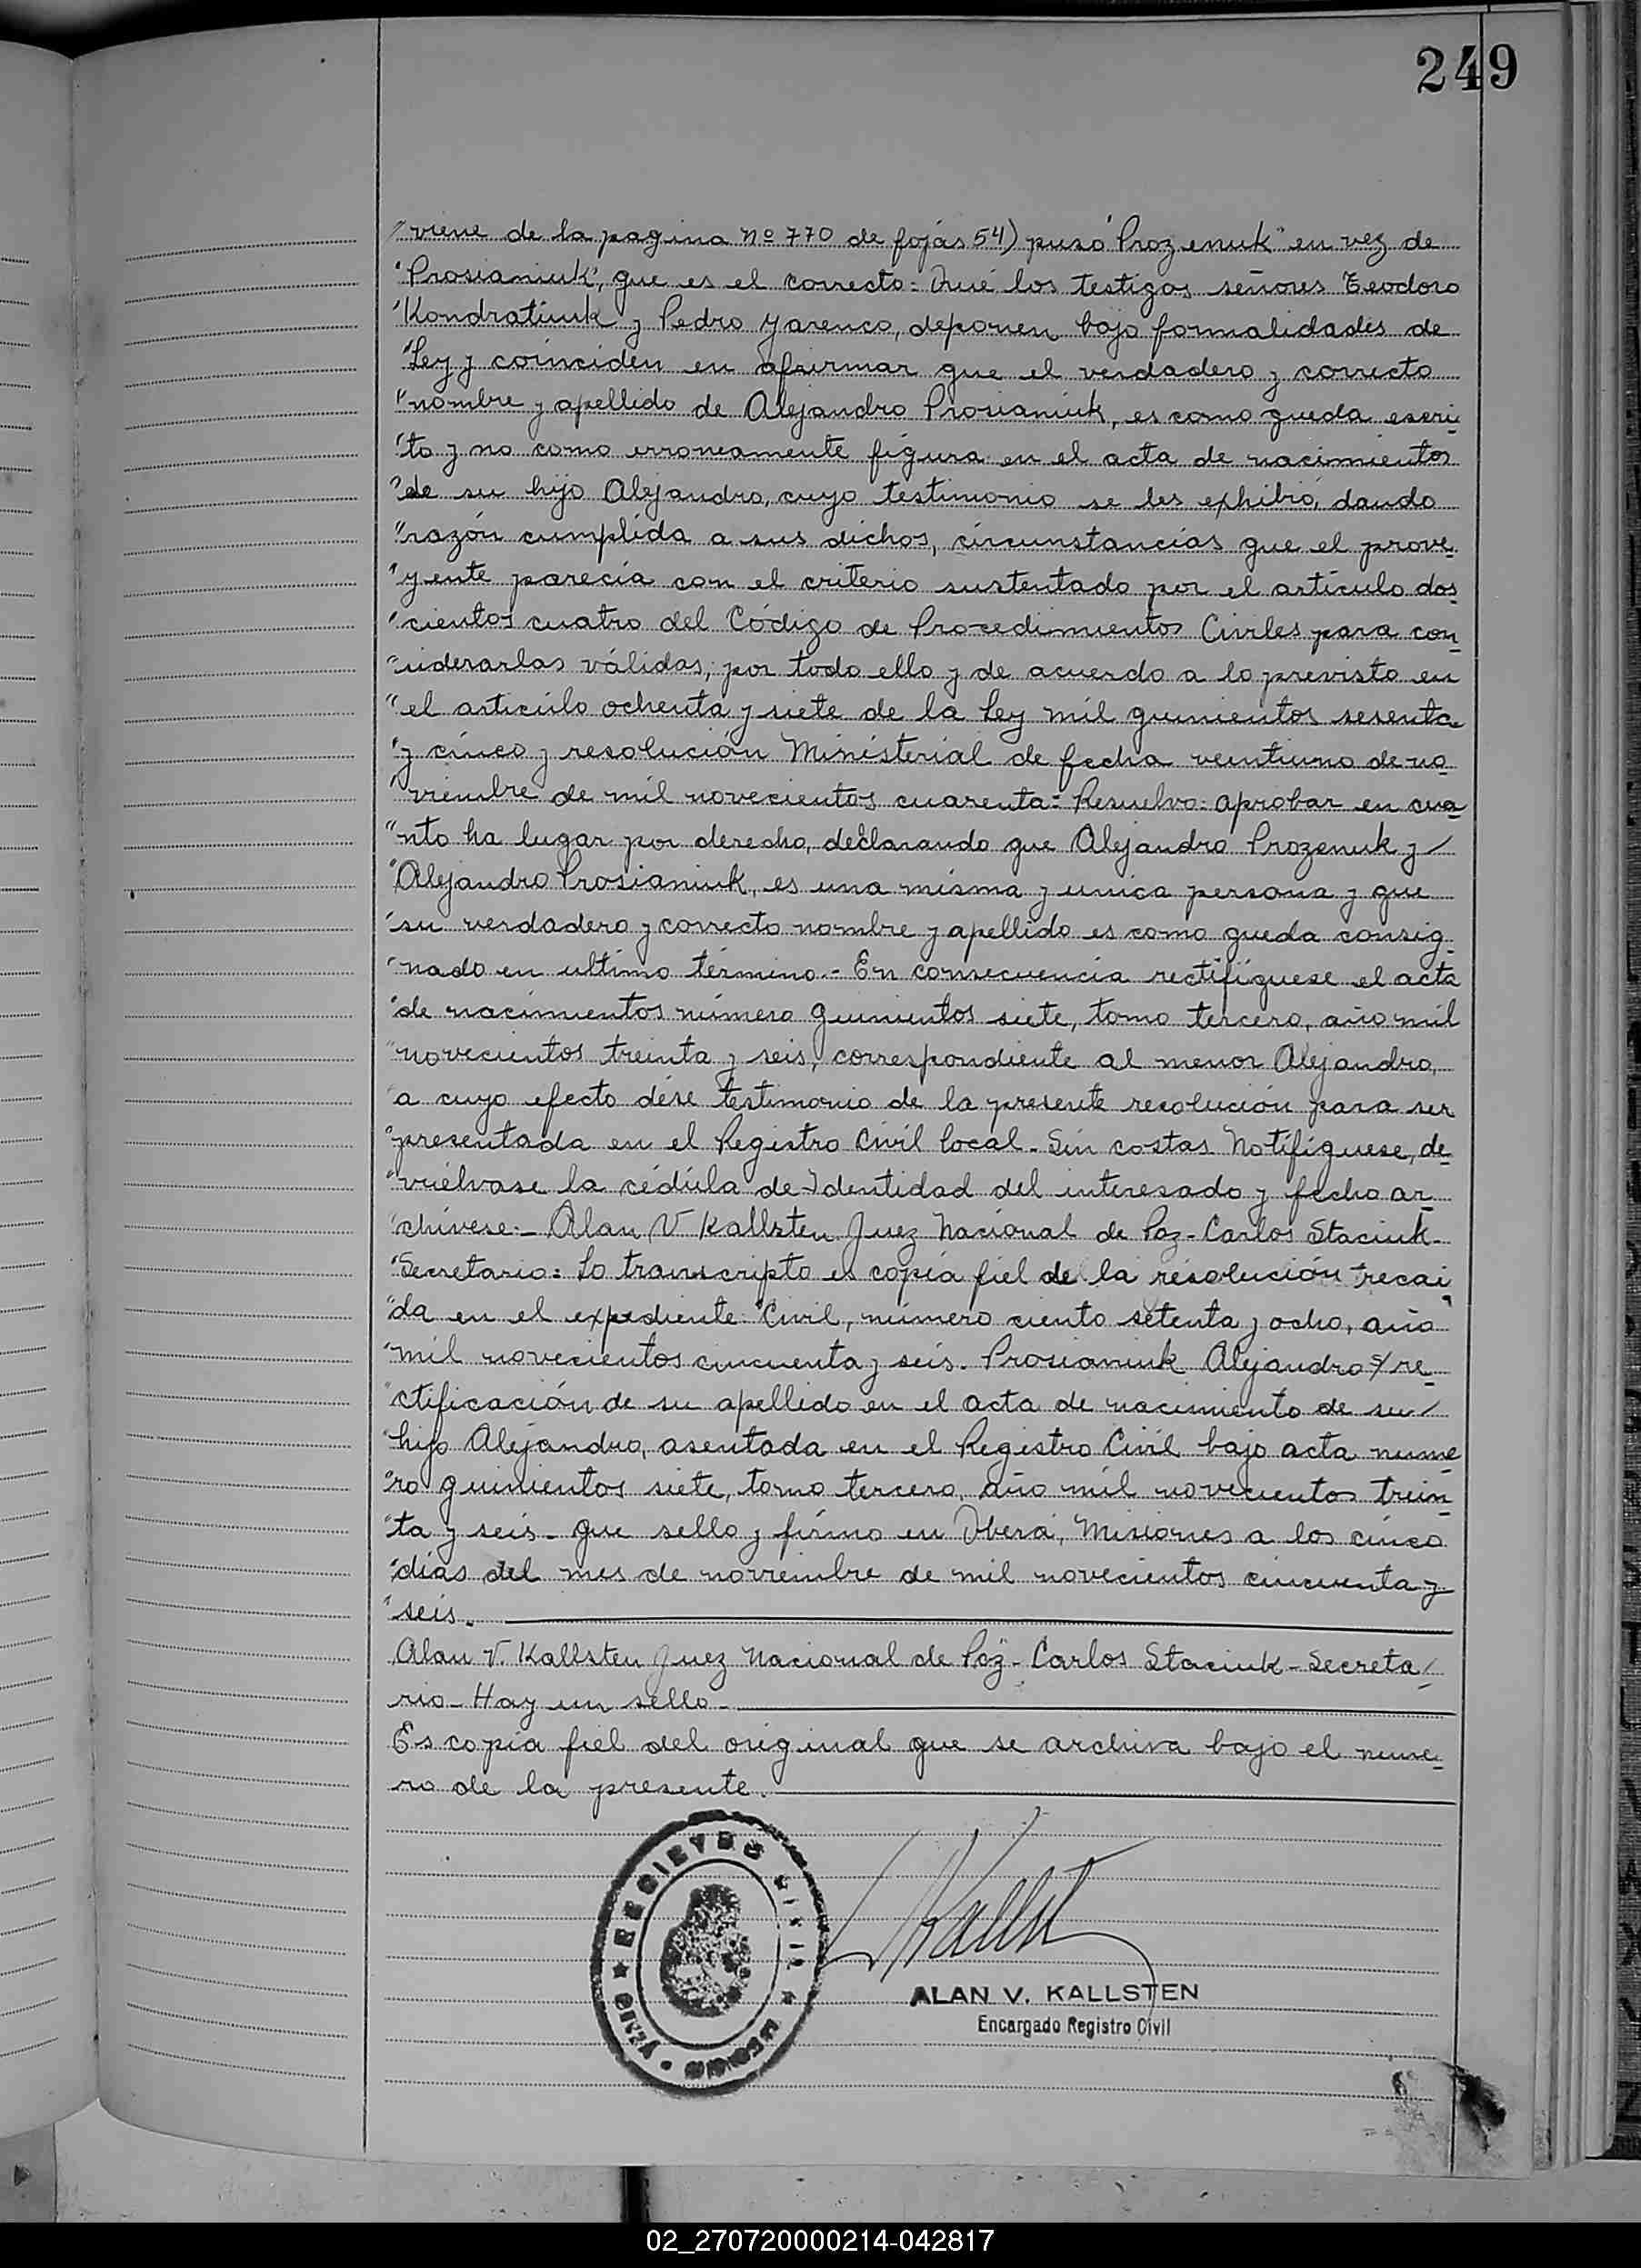 249
"viene de la pagina Nº 770 de fojas 54) puso "Prozenuk" en vez de
"Prosianiuk", que es el correcto: Que los testigos señores Teodoro
"Kondratiuk y Pedro Yarenco, deponen bajo formalidades de
"Ley y coinciden en afirmar que el verdadero y correcto
"nombre y apellido de Alejandro Prosianiuk, es como queda escri
"to y no como erroneamente figura en el acta de nacimientos
"de su hijo Alejandro, cuyo testimonio se les exhibió, dando
"razón cumplida a sus dichos, circunstancias que el prove
"yente parecia con el criterio sustentado por el artículo dos
"cientos cuatro del Código de Procedimientos Civiles para con
"siderarlas válidas; por todo ello y de acuerdo a lo previsto en
"el articulo ochenta y siete de la Ley mil quinientos sesenta
"y cinco y resolución Ministerial de fecha veintiuno de no
"viembre de mil novecientos cuarenta: Resuelvo: aprobar en cua
"nto ha lugar por derecho, declarando que Alejandro Prozenuk y/
"Alejandro Prosianiuk, es una misma y unica persona y que
"su verdadero y correcto nombre y apellido es como queda consig
"nado en ultimo término.- En consecuencia rectifíquese el acta
"de nacimientos número quinientos siete, tomo tercero, año mil
"novecientos treinta y seis, correspondiente al menor Alejandro,
"a cuyo efecto dése testimonio de la presente resolución para ser
"presentada en el Registro Civil local. Sin costas Notifíquese, de
"vuélvase la cédula de Identidad del interesado y fecho ar
"chívese:- Alan V Kallsten Juez Nacional de Paz- Carlos Staciuk-
"Secretario: Lo transcripto es copia fiel de la resolución recai
"da en el expediente: "Civil, número ciento setenta y ocho, año
"mil novecientos cincuenta y seis. Prosianiuk Alejandro s/re
"ctificación de su apellido en el acta de nacimiento de su/
"hijo Alejandro, asentada en el Registro Civil bajo acta nume
"ro quinientos siete, tomo tercero, año mil novecientos trein
"ta y seis- que sello y firmo en Oberá, Misiones a los cinco
"días del mes de noviembre de mil novecientos cincuenta y
"seis.
Alan V. Kallsten Juez Nacional de Paz- Carlos Staciuk- Secreta/
rio- Hay un sello-
Es copia fiel del original que se archiva bajo el nume
ro de la presente.
REGISTRO CIVIL
ALAN V. KALLSTEN
Encargado Registro Civil
02_270720000214-042817